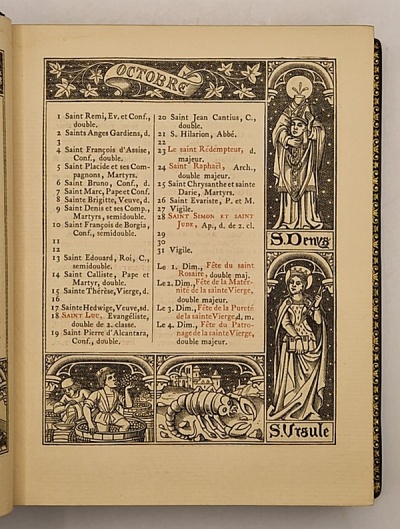 OCTOBRE
1 Saint Remi, Ev. et Conf.,
double.
2 Saints Anges Gardiens, d.
3
4 Saint François d'Assise,
Conf., double.
5 Saint Placide et ses Com-
pagnons, Martyrs.
6 Saint Bruno, Conf., d.
7 Saint Marc, Pape et Conf.
8 Sainte Brigitte, Veuve, d.
9 Saint Denis et ses Comp.,
Martyrs, semidouble.
10 Saint François de Borgia,
Conf., semidouble.
11
12
13 Saint Edouard, Roi, C.,
semidouble.
14 Saint Calliste, Pape et
Martyr, double.
15 Sainte Thérèse, Vierge, d.
16
17 Sainte Hedwige, Veuve, sd.
18 SAINT LUC, Evangéliste,
double de 2. classe.
19 Saint Pierre d'Alcantara,
Conf., double.
20 Saint Jean Cantius, C.,
double.
21 S. Hilarion, Abbé.
22
23 Le saint Rédempteur, d.
majeur.
24 Saint Raphaël, Arch.,
double majeur.
25 Saint Chrysanthe et sainte
Darie, Martyrs.
26 Saint Evariste, P. et M.
27 Vigile.
28 SAINT SIMON ET SAINT
JUDE, Ap., d. de 2. cl.
29
30
31 Vigile.
Le 1. Dim., Fête du saint
Rosaire, double maj.
Le 2. Dim., Fête de la Mater-
nité de la sainte Vierge,
double majeur.
Le 3. Dim., Fête de la Pureté
de la sainte Vierge, d. m.
Le 4. Dim., Fête du Patro-
nage de la sainte Vierge,
double majeur.
S. Denys
S. Ursule